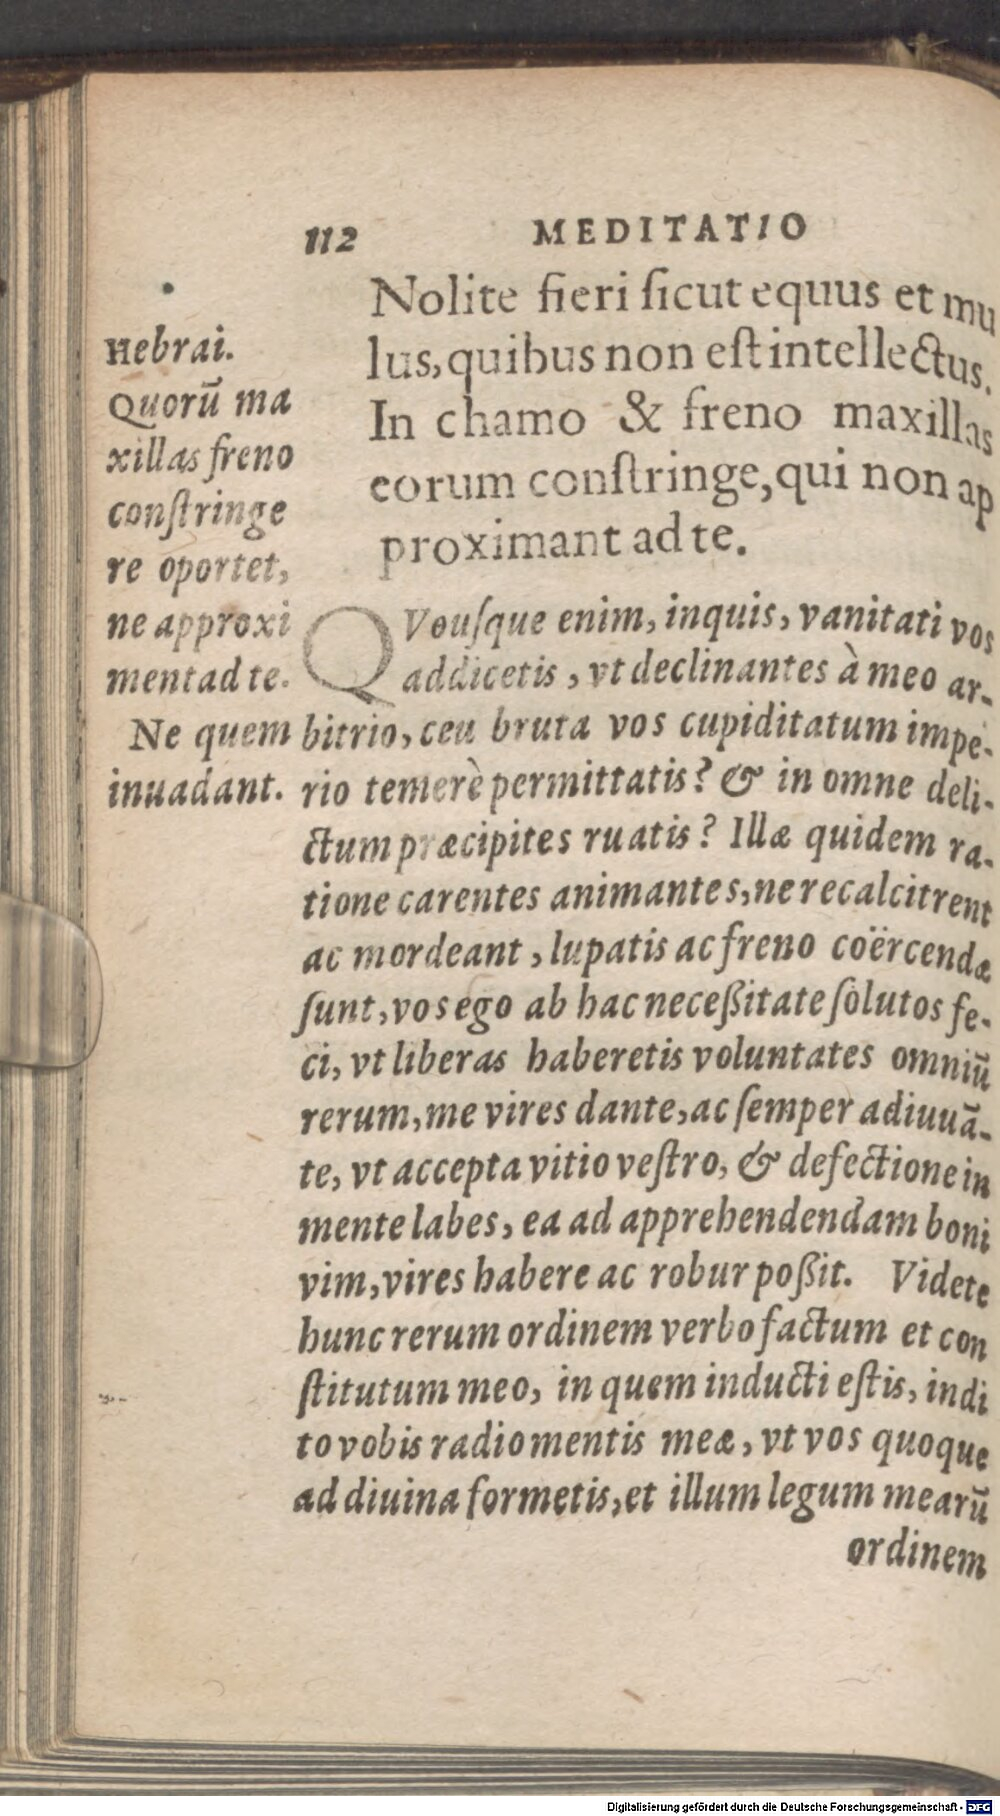 112 MEDITATIO
Nolite fieri ſicut equus et mu
lus, quibus non eſt intellectus.
In chamo & freno maxillas
eorum conſtringe, qui non ap
proximant ad te.
Hebrai.
Quorū ma
xillas freno
conſtringe
re oportet,
ne approxi
ment ad te.
Ne quem
inuadant.
QVouſque enim, inquis, vanitati vos
addicetis, vt declinantes à meo ar-
bitrio, ceu bruta vos cupiditatum impe-
rio temerè permittatis? & in omne deli-
ctum præcipites ruatis? Illæ quidem ra-
tione carentes animantes, ne recalcitrent
ac mordeant, lupatis ac freno coërcendæ
ſunt, vos ego ab hac neceßitate ſolutos fe-
ci, vt liberas haberetis voluntates omniū
rerum, me vires dante, ac ſemper adiuuā-
te, vt accepta vitio veſtro, & defectione in
mente labes, ea ad apprehendendam boni
vim, vires habere ac robur poßit. Videte
hunc rerum ordinem verbo factum et con
ſtitutum meo, in quem inducti eſtis, indi
to vobis radio mentis meæ, vt vos quoque
ad diuina formetis, et illum legum mearū
ordinem
Digitalisierung gefördert durch die Deutsche Forschungsgemeinschaft - DFG